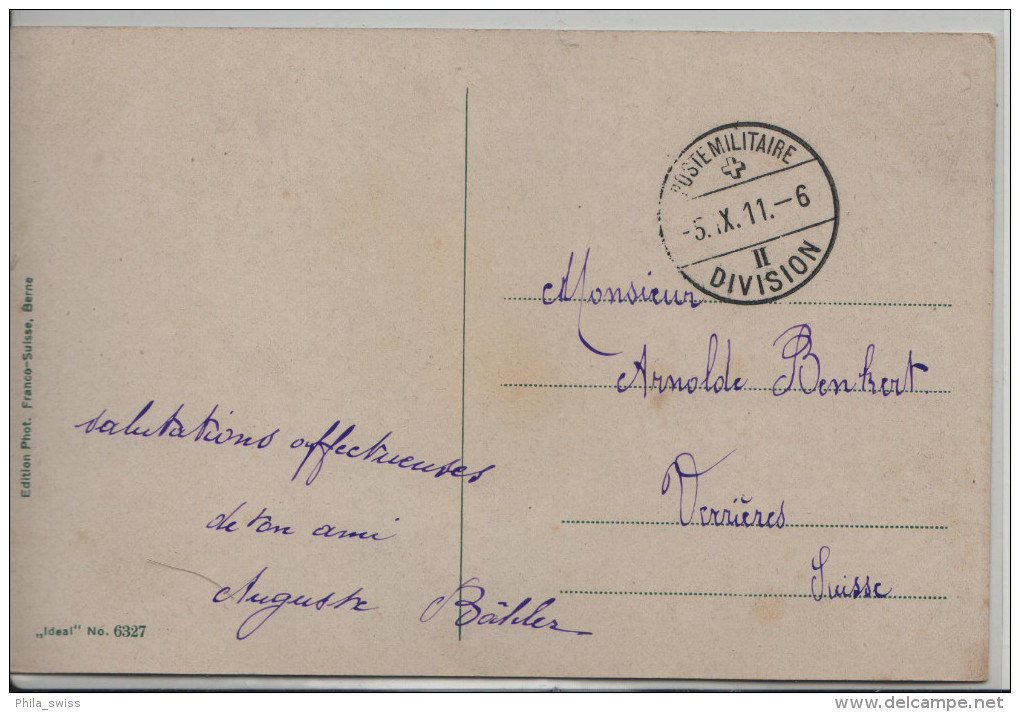 POSTE MILITAIRE
-5.IX.11.-6
II
DIVISION
Monsieur
Arnolde Benkert.
Verrières
Suisse
salutations affectueuses
de ton ami
Auguste Bähler
Edition Phot. Franco-Suisse, Berne
„Ideal" No. 6327
Phila_swiss
delcampe.net